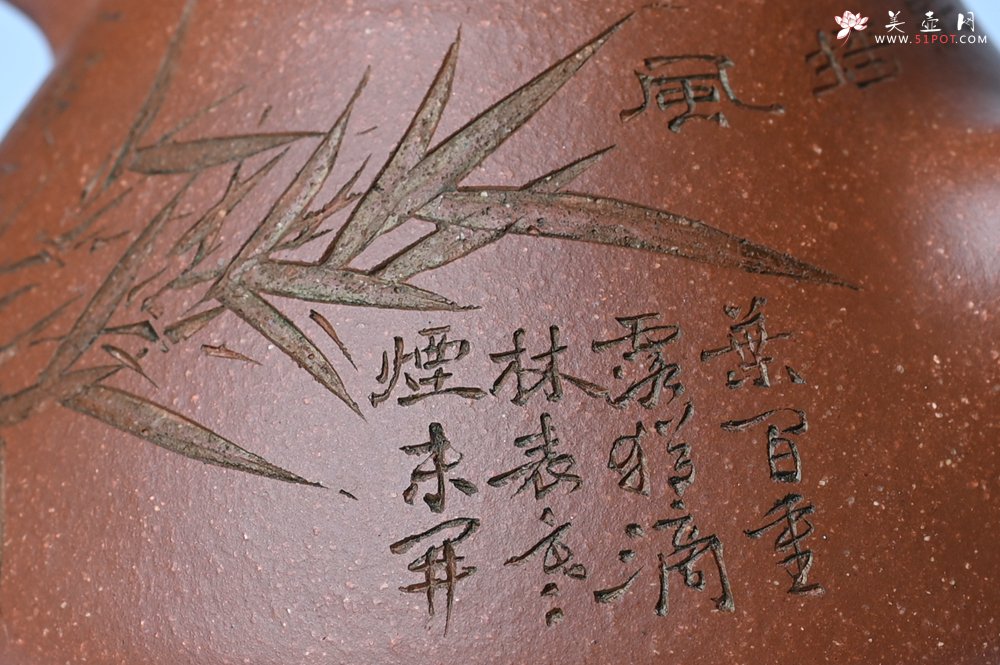 美壶网
WWW.51POT.COM
風
葉百重
露猶滴
林表寒
煙未開